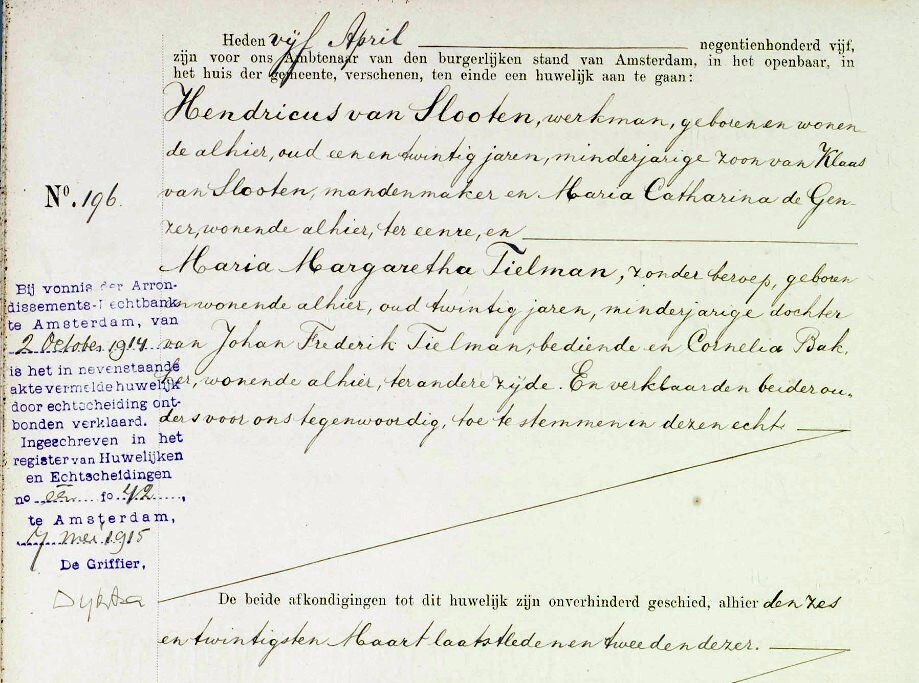 Heden vijf April negentienhonderd vijf,
zijn voor ons Ambtenaar van den burgerlijken stand van Amsterdam, in het openbaar, in
het huis der gemeente, verschenen, ten einde een huwelijk aan te gaan:
Hendricus van Slooten, werkman, geboren en wonen
de alhier, oud een en twintig jaren, minderjarige zoon van Klaas
van Slooten, mandenmaker en Maria Catharina de Gen-
zer, wonende alhier, ter eenre, en
Maria Margaretha Tielman, zonder beroep, geboren
en wonende alhier, oud twintig jaren, minderjarige dochter
van Johan Frederik Tielman, bediende en Cornelia Bak,
ker, wonende alhier, ter andere zijde. En verklaarden beider ou,
ders voor ons tegenwoordig, toe te stemmen in dezen echt.
No. 196.
Bij vonnis der Arron-
dissements-Rechtbank
te Amsterdam, van
2 October 1914
is het in nevenstaande
akte vermelde huwelijk
door echtscheiding ont-
bonden verklaard.
Ingeschreven in het
register van Huwelijken
en Echtscheidingen
no fo 42,
te Amsterdam,
7 mei 1915
De Griffier,
De beide afkondigingen tot dit huwelijk zijn onverhinderd geschied, alhier den zes
en twintigsten Maart laatstleden en tweeden dezer.